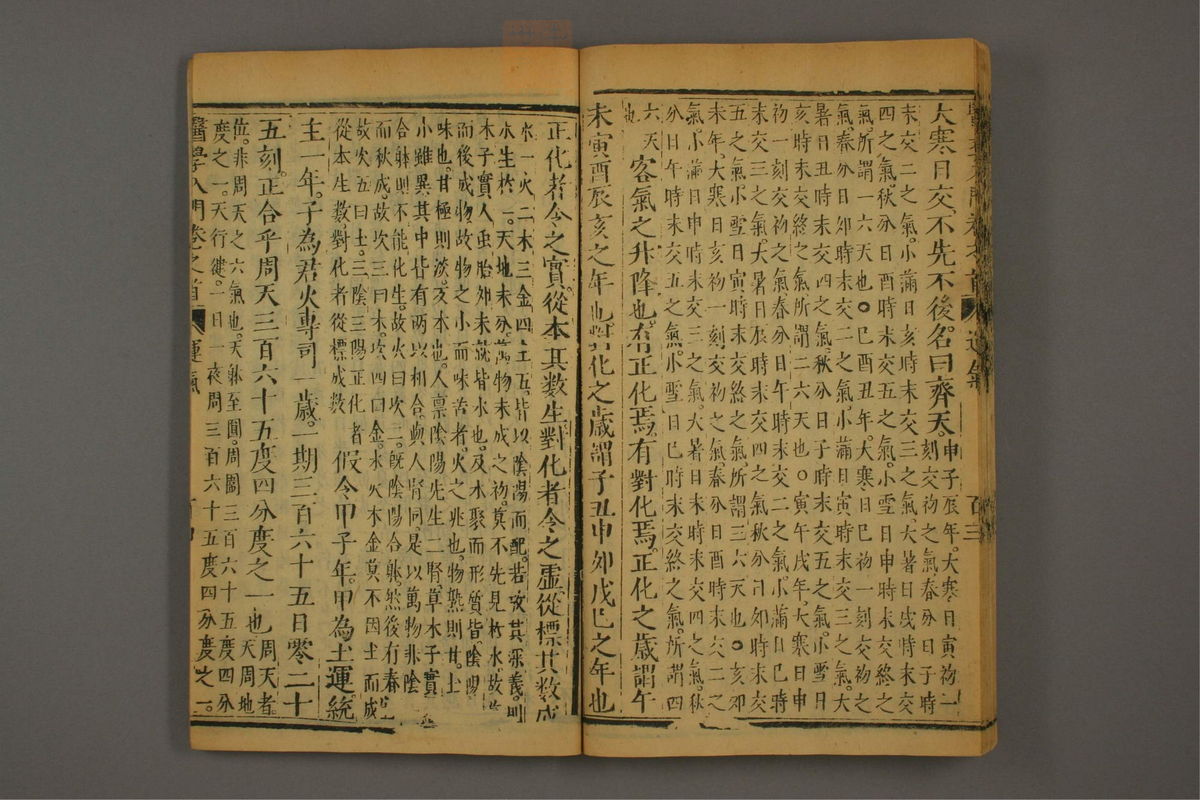 醫學入門卷之首 運氣 百三
大寒日交,不先不後,名曰齊天。申子辰年。大寒日寅初一
刻交初之氣春分日子時
末交二之氣。小滿日亥時末交三之氣。大暑日戌時末交
四之氣。秋分日酉時末交五之氣。小雪日申時末交終之
氣。所謂一六天也。○巳酉丑年。大寒日巳初一刻交初之
氣。春分日卯時末交二之氣。小滿日寅時末交三之氣。大
暑日丑時末交四之氣。秋分日子時末交五之氣。小雪日
亥時末交終之氣所謂二六天也。○寅午戌年。大寒日申
初一刻交初之氣春分日午時末交二之氣。小滿日巳時
末交三之氣。大暑日辰時末交四之氣秋分日卯時末交
五之氣。小雪日寅時末交終之氣。所謂三六天也。○亥卯
未年。大寒日亥初一刻交初之氣。春分日酉時末交二之
氣。小滿日申時末交三之氣。大暑日未時末交四之氣。秋
分日午時末交五之氣。小雪日巳時末交終之氣。所謂四
六天也客氣之升降也。有正化焉。有對化焉。正化之歲謂午
未寅酉辰亥之年也對化之歲謂子丑申卯戌巳之年也
正化者令之實。從本其數生對化者令之虛從標其數成
水一火二木三金四土五。皆以陰陽而配。若攷其深義。則
水生於一。天地未分。萬物未成之初。莫不先見於水。故
木子實人虫胎卵未就皆水也。及水聚而形質皆陰陽
而後成物。故物之小而味苦者。火之兆也。物熟則甘。土
味也。甘極則淡。反本也。人稟陰陽先生二腎。草木子實
小雖異。其中皆有兩以相合。與人腎同。是以萬物非陰
合躰則不能化生。故火曰次二。旣陰陽合躰然後有春
而秋成。故次三曰木次四曰金。水火木金莫不因土而成
故次五曰土。三陰三陽正化者
從本生數。對化者從標成數假令甲子年。甲為土運。統
主一年。子為君火專司一歲。一期三百六十五日零二十
五刻。正合乎周天三百六十五度四分度之一也周天者。
天周地
位。非周天之六氣也。天躰至圓。周圍三百六十五度四分
度之一。天行健。一日一夜周三百六十五度四分度之一。
醫學入門卷之首 運氣 百四